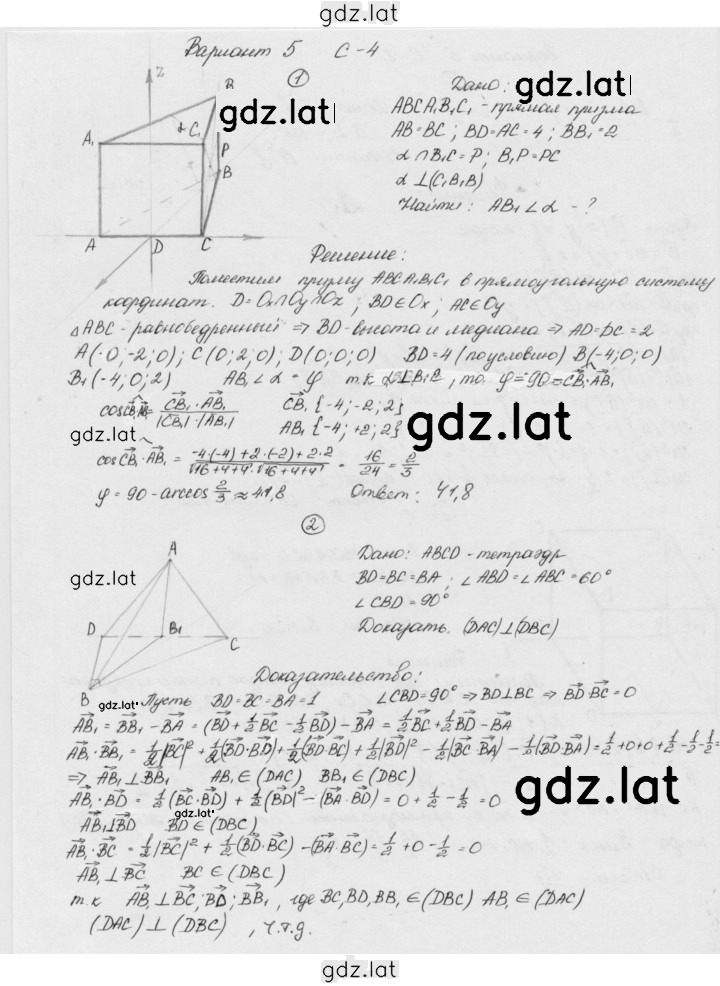 gdz.lat
Вариант 5 С-4
①
Z
B
A₁
α
C₁
P
B
A
D
C
gdz.lat
gdz.lat
Дано:
ABCA₁B₁C₁ - прямая призма
AB=BC ; BD=AC=4 ; BB₁=2
α ∩ B₁C = P ; B₁P=PC
α ⊥ (C₁B₁B)
Найти: AB₁ ∠ α - ?
Решение:
Поместим призму ABCA₁B₁C₁ в прямоугольную систему
координат. D=Ox∩Oy∩Oz ; BD∈Ox ; AC∈Oy
△ABC - равнобедренный ⇒ BD - высота и медиана ⇒ AD=DC=2
A(0;-2;0) ; C(0;2;0) ; D(0;0;0) BD=4 (по условию) B(-4;0;0)
B₁(-4;0;2) AB₁ ∠ α = φ т.к α⊥B₁C, то φ=90-CB₁·AB₁
cos CB₁AB₁ = CB₁·AB₁ / |CB₁|·|AB₁| CB₁{-4;-2;2}
gdz.lat
AB₁{-4;+2;2}
gdz.lat
cos CB₁·AB₁ = -4·(-4)+2·(-2)+2·2 / √16+4+4·√16+4+4 = 16/24 = 2/3
φ = 90 - arccos 2/3 ≈ 41,8 Ответ: 41,8
②
A
D
B₁
C
B
gdz.lat
Дано: ABCD - тетраэдр
BD=BC=BA ; ∠ABD=∠ABC=60°
∠CBD=90°
Доказать. (DAC)⊥(DBC)
Доказательство:
gdz.lat
Пусть BD=BC=BA=1 ∠CBD=90° ⇒ BD⊥BC ⇒ BD·BC=0
AB₁ = BB₁ - BA = (BD + 1/2 BC - 1/2 BD) - BA = 1/2 BC + 1/2 BD - BA
AB₁·BB₁ = 1/2|BC|² + 1/2(BD·BD) + 1/2(BD·BC) + 1/2|BD|² - 1/2(BC·BA) - 1/2(BD·BA) = 1/2+0+0+1/2-1/2-1/2=
⇒ AB₁⊥BB₁ AB₁∈(DAC) BB₁∈(DBC)
AB₁·BD = 1/2(BC·BD) + 1/2|BD|² - (BA·BD) = 0 + 1/2 - 1/2 = 0
gdz.lat
gdz.lat
AB₁⊥BD BD∈(DBC)
AB₁·BC = 1/2|BC|² + 1/2(BD·BC) - (BA·BC) = 1/2 + 0 - 1/2 = 0
AB₁⊥BC BC∈(DBC)
т.к AB₁⊥BC; BD; BB₁, где BC, BD, BB₁∈(DBC) AB₁∈(DAC)
(DAC)⊥(DBC) , ч.т.д.
gdz.lat